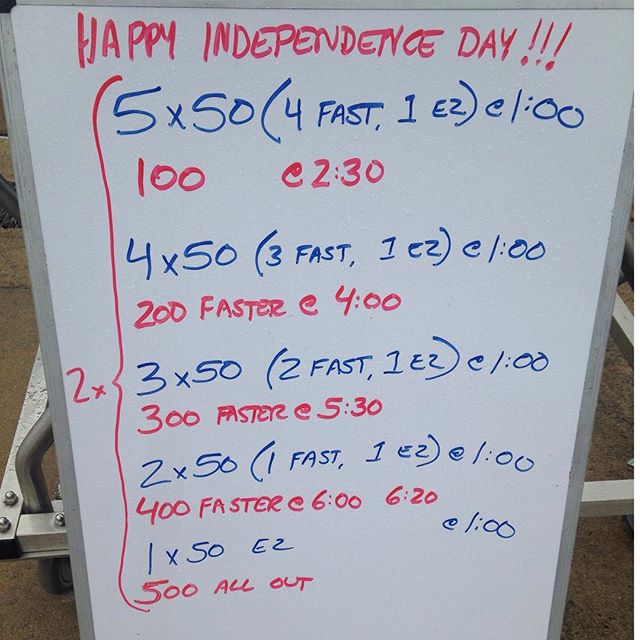 HAPPY INDEPENDENCE DAY!!!
5x50 (4 FAST, 1 EZ) @ 1:00
100 @ 2:30
4x50 (3 FAST, 1 EZ) @ 1:00
200 FASTER @ 4:00
2x { 3x50 (2 FAST, 1 EZ) @ 1:00
300 FASTER @ 5:30
2x50 (1 FAST, 1 EZ) @ 1:00
400 FASTER @ 6:00 6:20
1x50 EZ @ 1:00
500 ALL OUT